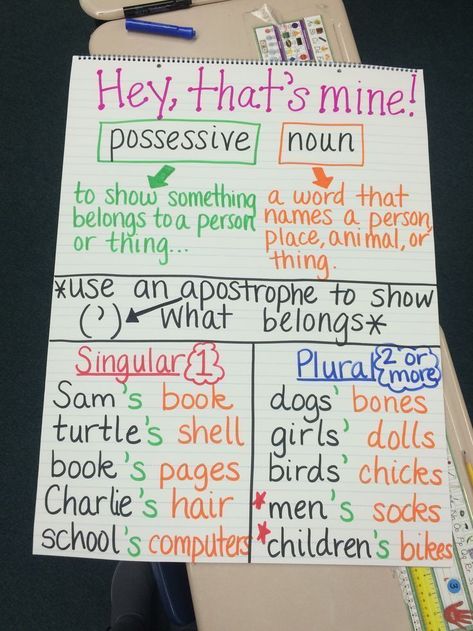 Hey, that's mine!
possessive
noun
to show something
belongs to a person
or thing...
a word that
names a person,
place, animal, or
thing.
*use an apostrophe to show
(') what belongs*
Singular 1
Sam's book
turtle's shell
book's pages
Charlie's hair
school's computers
Plural 2 or
more
dogs' bones
girls' dolls
birds' chicks
*men's socks
*children's bikes